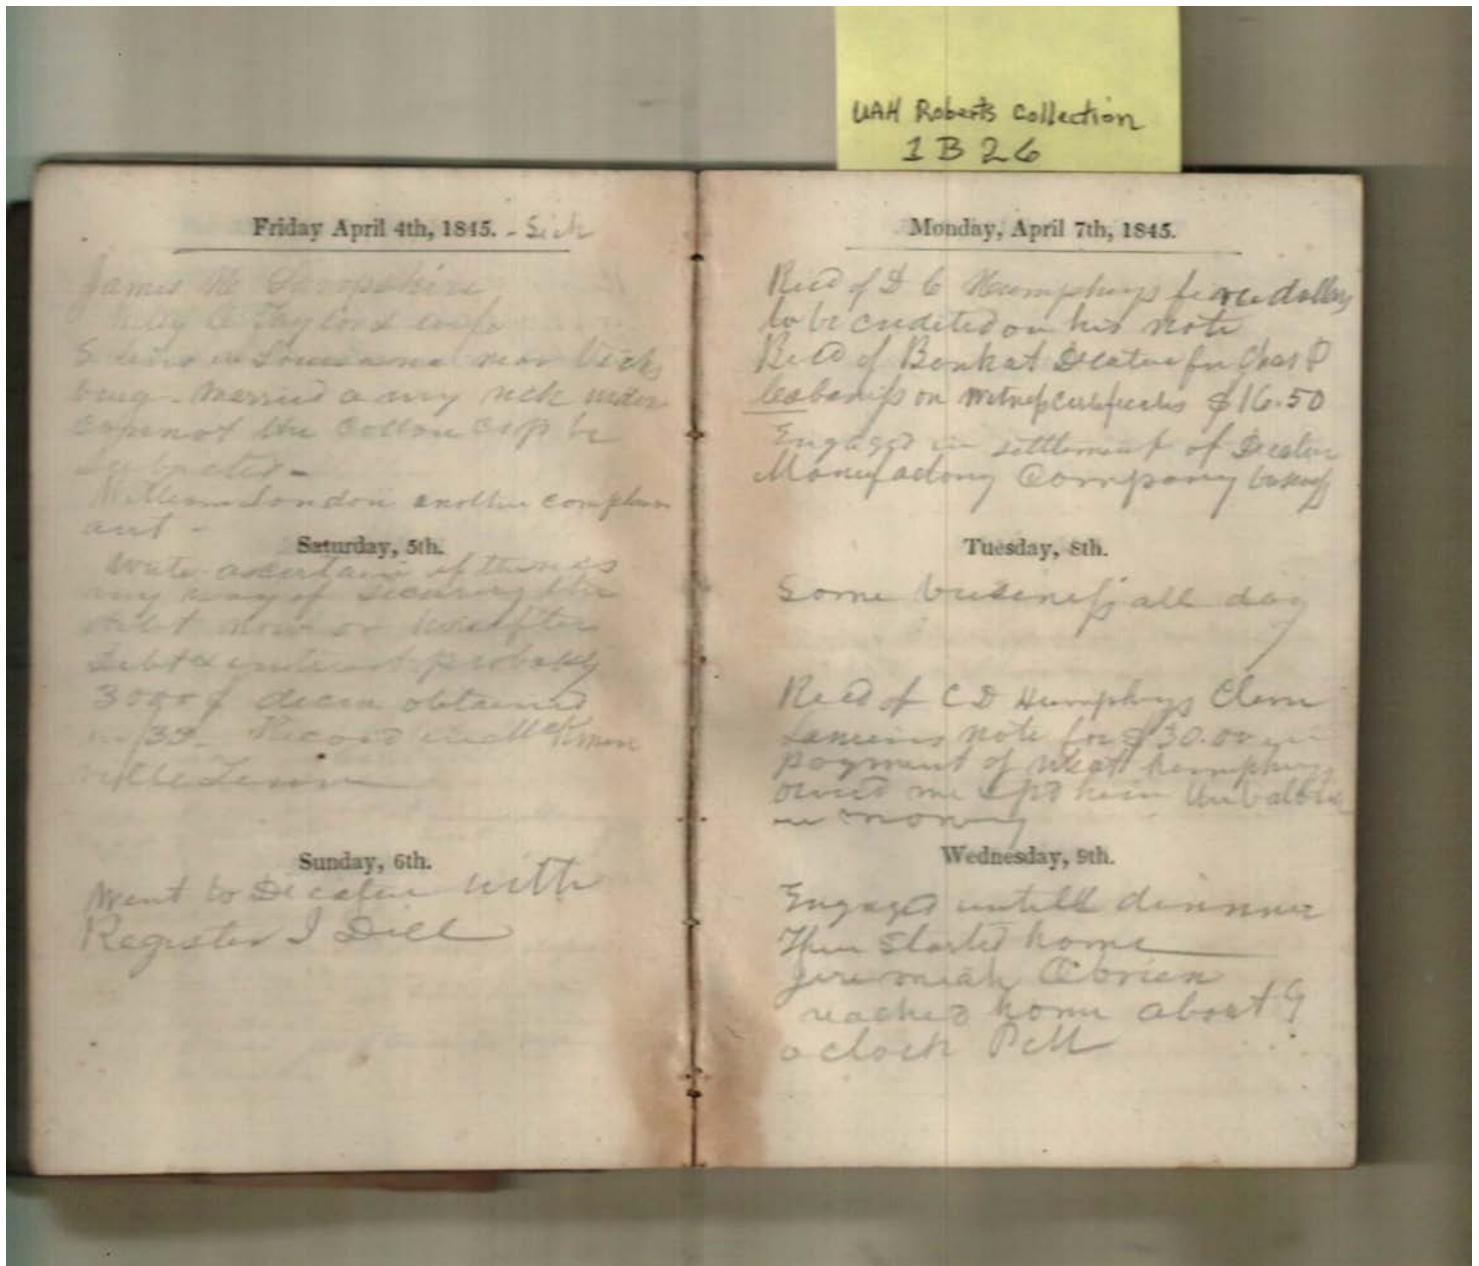 UAH Roberts Collection
1 B 26
Friday April 4th, 1845. - Sick
James M
Taylor
Louisiana near Vicks
burg - married a very rich widow
cannot the Cotton crop be
subjected -
William London another complain
ant -
Saturday, 5th.
Write ascertain if there is
any way of securing the
debt now or hereafter
Debt & interest probably
3000$ decree obtained
in /39 - Record in McMinn
ville Tenn
Sunday, 6th.
Went to Decatur with
Register I Dill
Monday, April 7th, 1845.
Recd of D C Humphrys five dollars
to be credited on his note
Recd of Bank at Decatur for Chas P
Cabaniss on Witness certificates $16.50
Engaged in settlement of Decatur
Manufactory Company business
Tuesday, 8th.
Same buseness all day
Recd of C D Humphrys Clem
note for $30.00 in
payment of what Humphrys
owed me & pd him the balance
in money
Wednesday, 9th.
Engaged untill dinnner
Then Started home
Jeremiah Obrien
reached home about 9
oclock P M